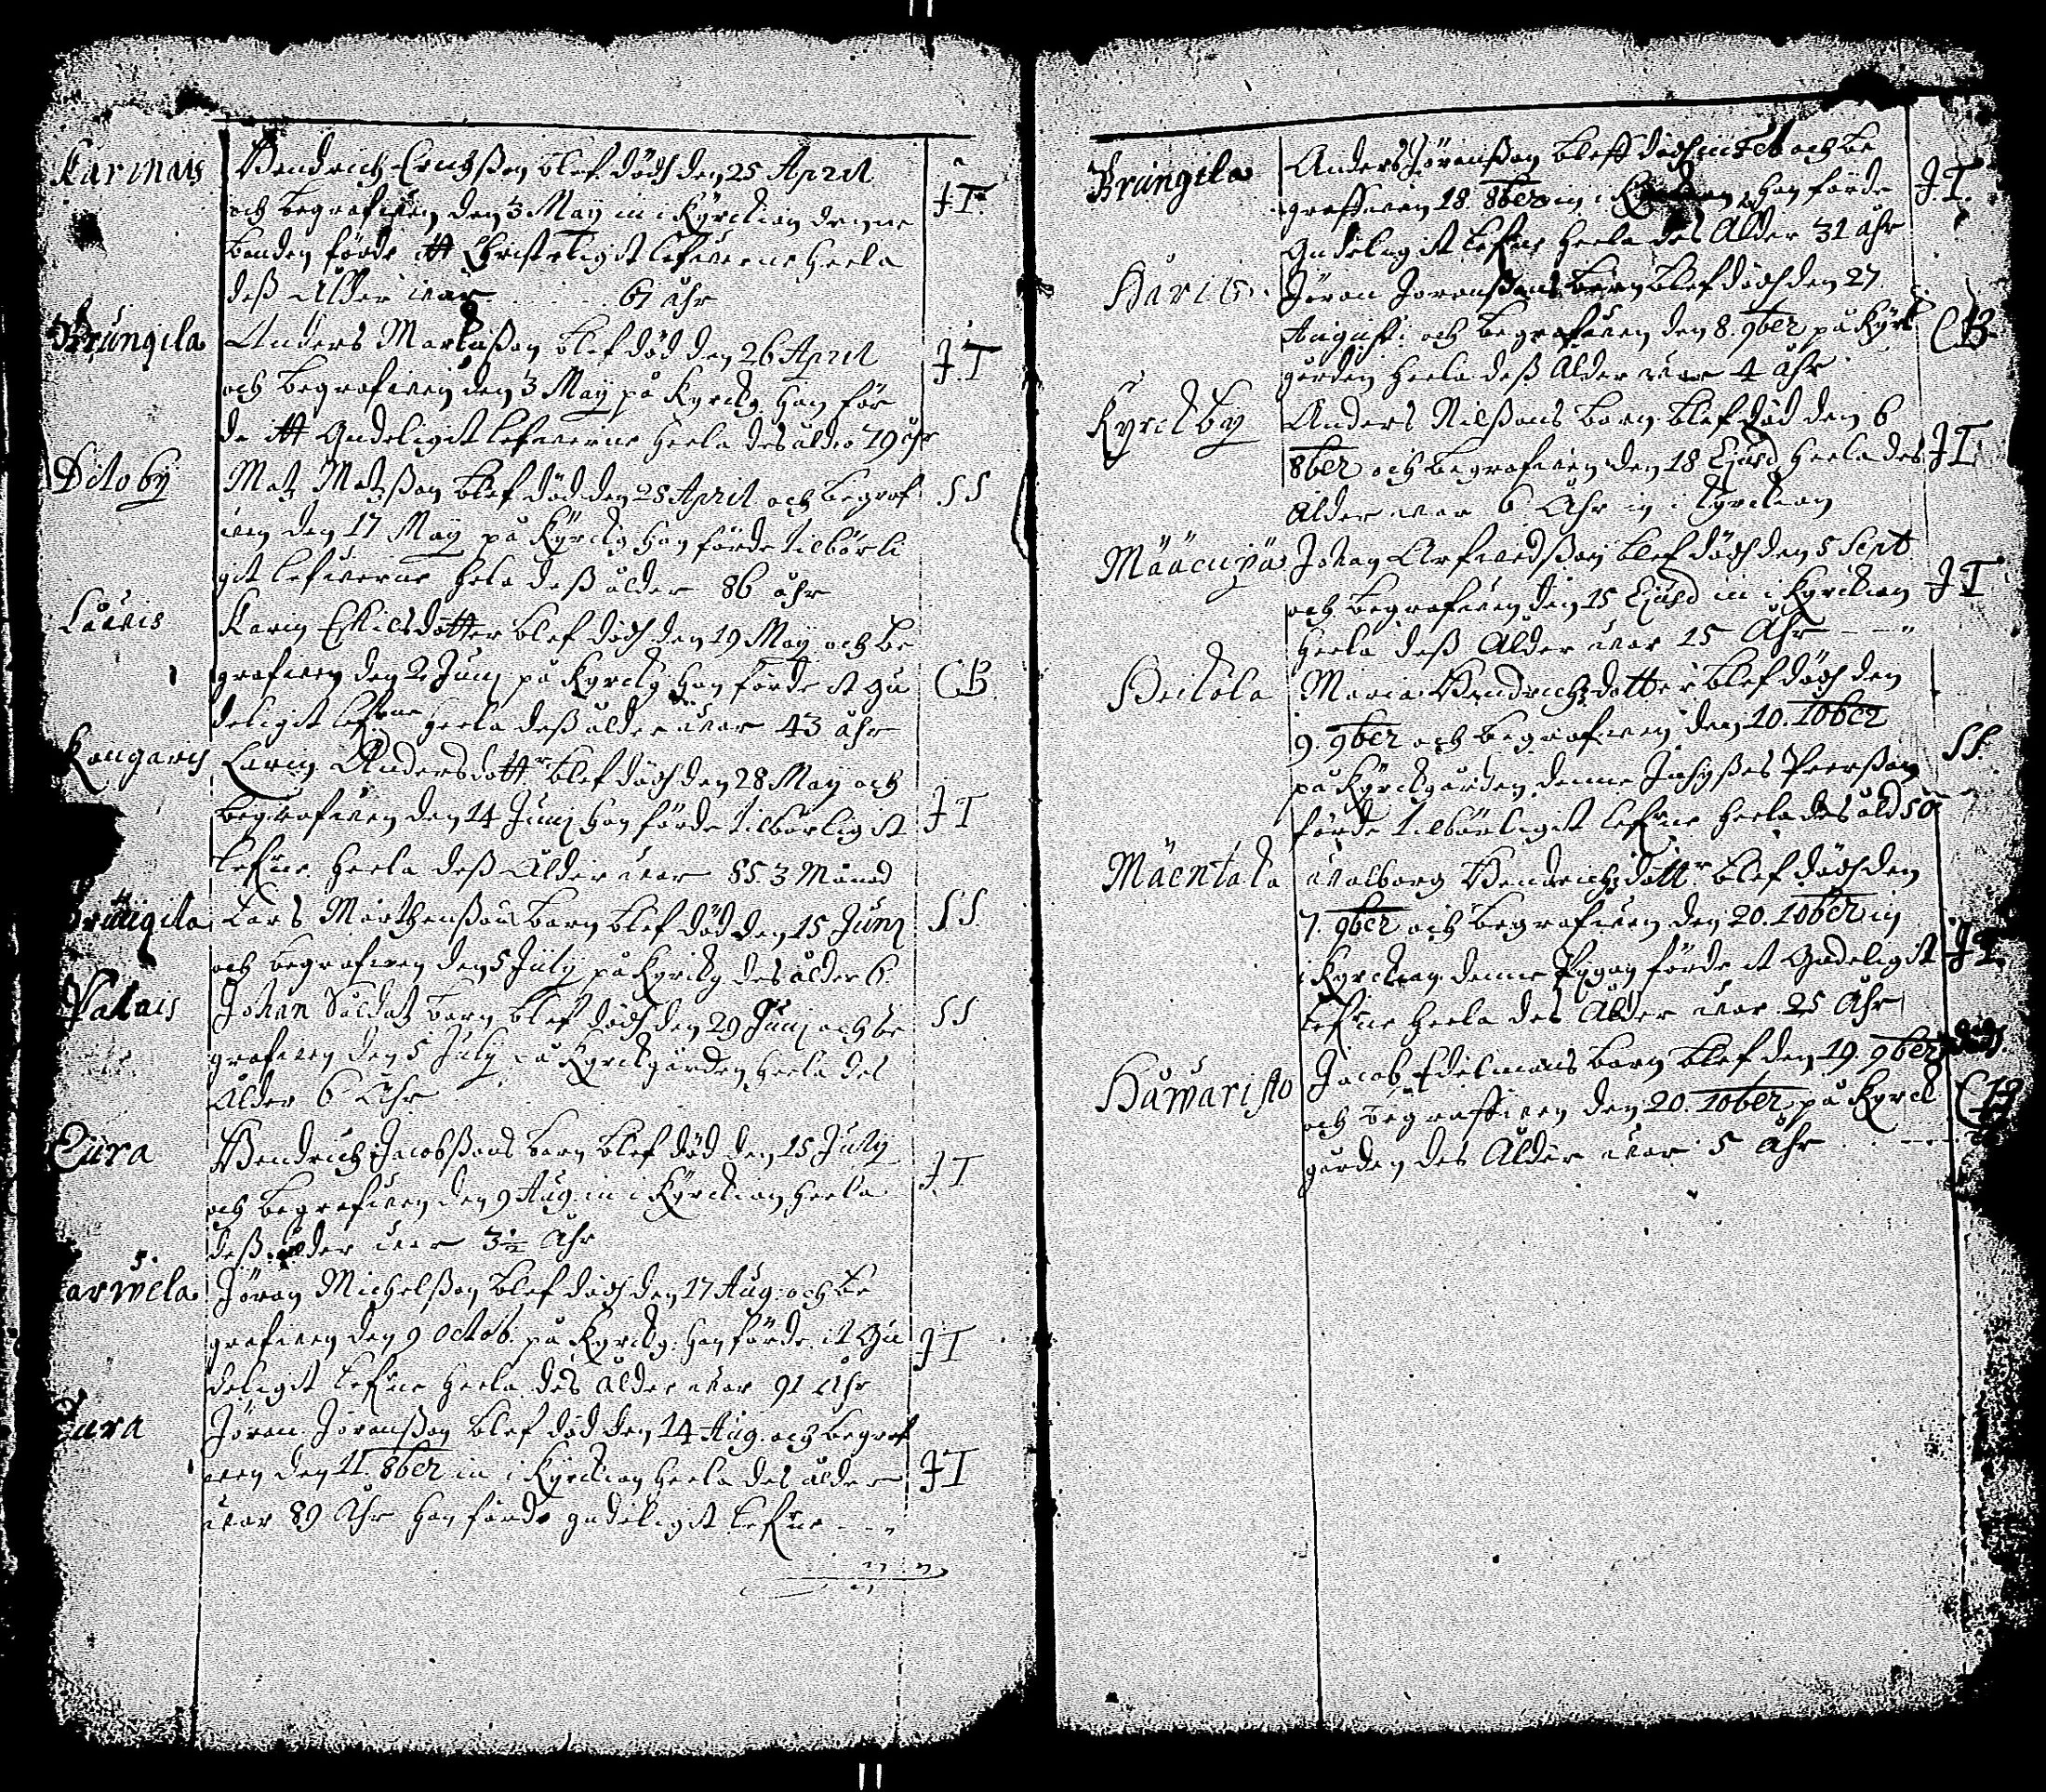 Karinais Hendrich Erichsson blef dödh den 25 April
och begrafwen den 3 May in i Kyrckian denne
bonden förde itt Christeligit lefwerne Heela
deß Ålder war 67 åhr
J T.
Brungila Anders Marckusson blef död den 26 April
och begrafwen den 3 May på Kyrckg han för
de itt Gudeligit lefwerne heela des ålder 79 åhr
J T
Ditoby Matz Matzßon blef död den 28 April och begraf
wen den 17 May på Kyrckg han förde tilbörli
git lefwerne hela deß ålder 86 åhr
S S
Låuis Karin Eskilsdotter blef dödh den 19 May och be
grafwen den 2 Junj på Kyrckg han förde it Gu
deligit lefwne heela deß ålder war 43 åhr
C B
Kangaris Karin Andersdottr blef dödh den 28 May och
begrafwen den 14 Junj han förde tilbörligit
lefwne heela deß Ålder war 85. 3 Månad
J T
Brungila Lars Mårthenßons barn blef död den 15 Junj
och begrafwen den 5 Julij på Kyrckg des ålder 6.
S S
Valais Johan Soldatz barn blef dödh den 29 Junj och be
grafwen den 5 July på Kyrckgården heela des
Ålder 6 Åhr
S S
Eura Hendrich Jacobßons barn blef död den 15 July
och begrafwen den 9 Aug. in i Kyrckian heela
deß ålder war 3 1/2 Åhr
J T
arwela Jöran Michelßon blef dödh den 17 Aug. och be
grafwen den 9 Octob. på Kyrckg. han förde it Gu
deligit lefwne heela des ålder war 91 åhr
J T
ura Jöran Jöranßon blef död den 14 Aug. och begraf
wen den 11. 8ber in i Kyrckian heela des ålder
war 89 Åhr han förde gudeligit lefwne
J T
Brungila Anders Jöranßon bleff dödh och be
graffwen 18. 8ber in i han förde
Gudeligit lefwne heela des Ålder 31 åhr
J T.
Haris Jöran Joranßons barn blef dödh den 27
Augusti och begrafwen den 8. 9ber på Kyrk
gården heela deß Ålder war 4 åhr
C B
Kyrckby Anders Nilßons barn blef död den 6
8ber och begrafwen den 18 Ejusd heela des
Ålder war 6 Åhr in i Kyrckian
J T.
Johan Arfwedßon blef dödh den 5 Sept
och begrafwen den 15 Ejusd in i Kyrckian
heela deß Ålder war 15 Åhr
J T
Heckola Maria Hendrichzdotter blef dödh den
9. 9ber och begrafwen den 10. 10ber
på Kyrckgården denne Peerßon
förde tilbörligit lefwne heela des åld 50
S S.
Mäentaka walborg Hendrichzdottr blef dödh den
7. 9ber och begrafwen den 20. 10ber in
i Kyrckian denne Pygan förde it Gudeligit
lefwne heela des Ålder war 25 Åhr
J T
Hawaristo Jacob Edelmans barn blef den 19. 9ber dödh
och begraffwen den 20. 10ber på Kyrck
gården des Ålder war 5 åhr
C B